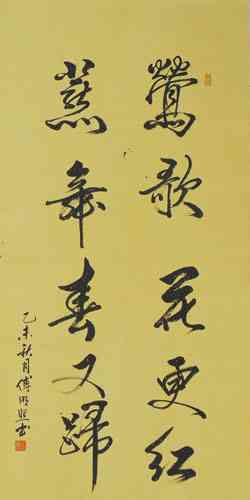 鶯歌花更紅
燕舞春又歸
乙未秋月傅明照书